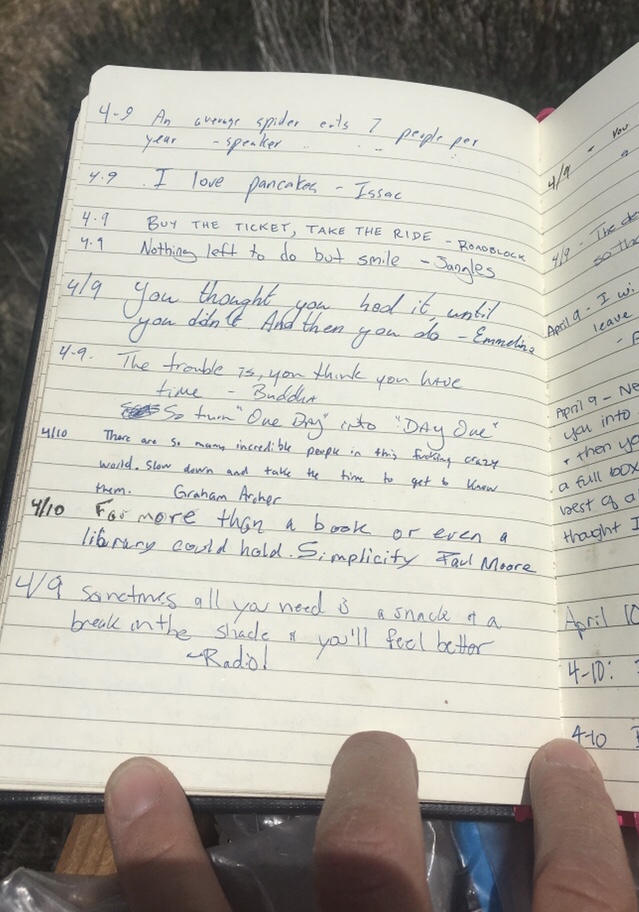 4-9 An average spider eats 7 people per
year - speaker
4.9 . I love pancakes - Issac
4.9 BUY THE TICKET, TAKE THE RIDE - ROADBLOCK
4.9 Nothing left to do but smile - Jangles
4/9 You thought you had it, until
you didn't And then you do - Emmeline
4-9. The trouble is, you think you have
time - Buddha
So turn "One Day" into "DAY One"
4/10 There are so many incredible people in this fucking crazy
world. Slow down and take the time to get to know
them. Graham Archer
4/10 Far more than a book or even a
library could hold. Simplicity Paul Moore
4/9 Sometimes all you need is a snack & a
break in the shade & you'll feel better
~Radio!
4/9 - You
a
4/9 - The
so
April 9 - I wi
leave
April 9 - Ne
you into
then yo
a full box
best of a
thought I
April 10
4-10:
4-10